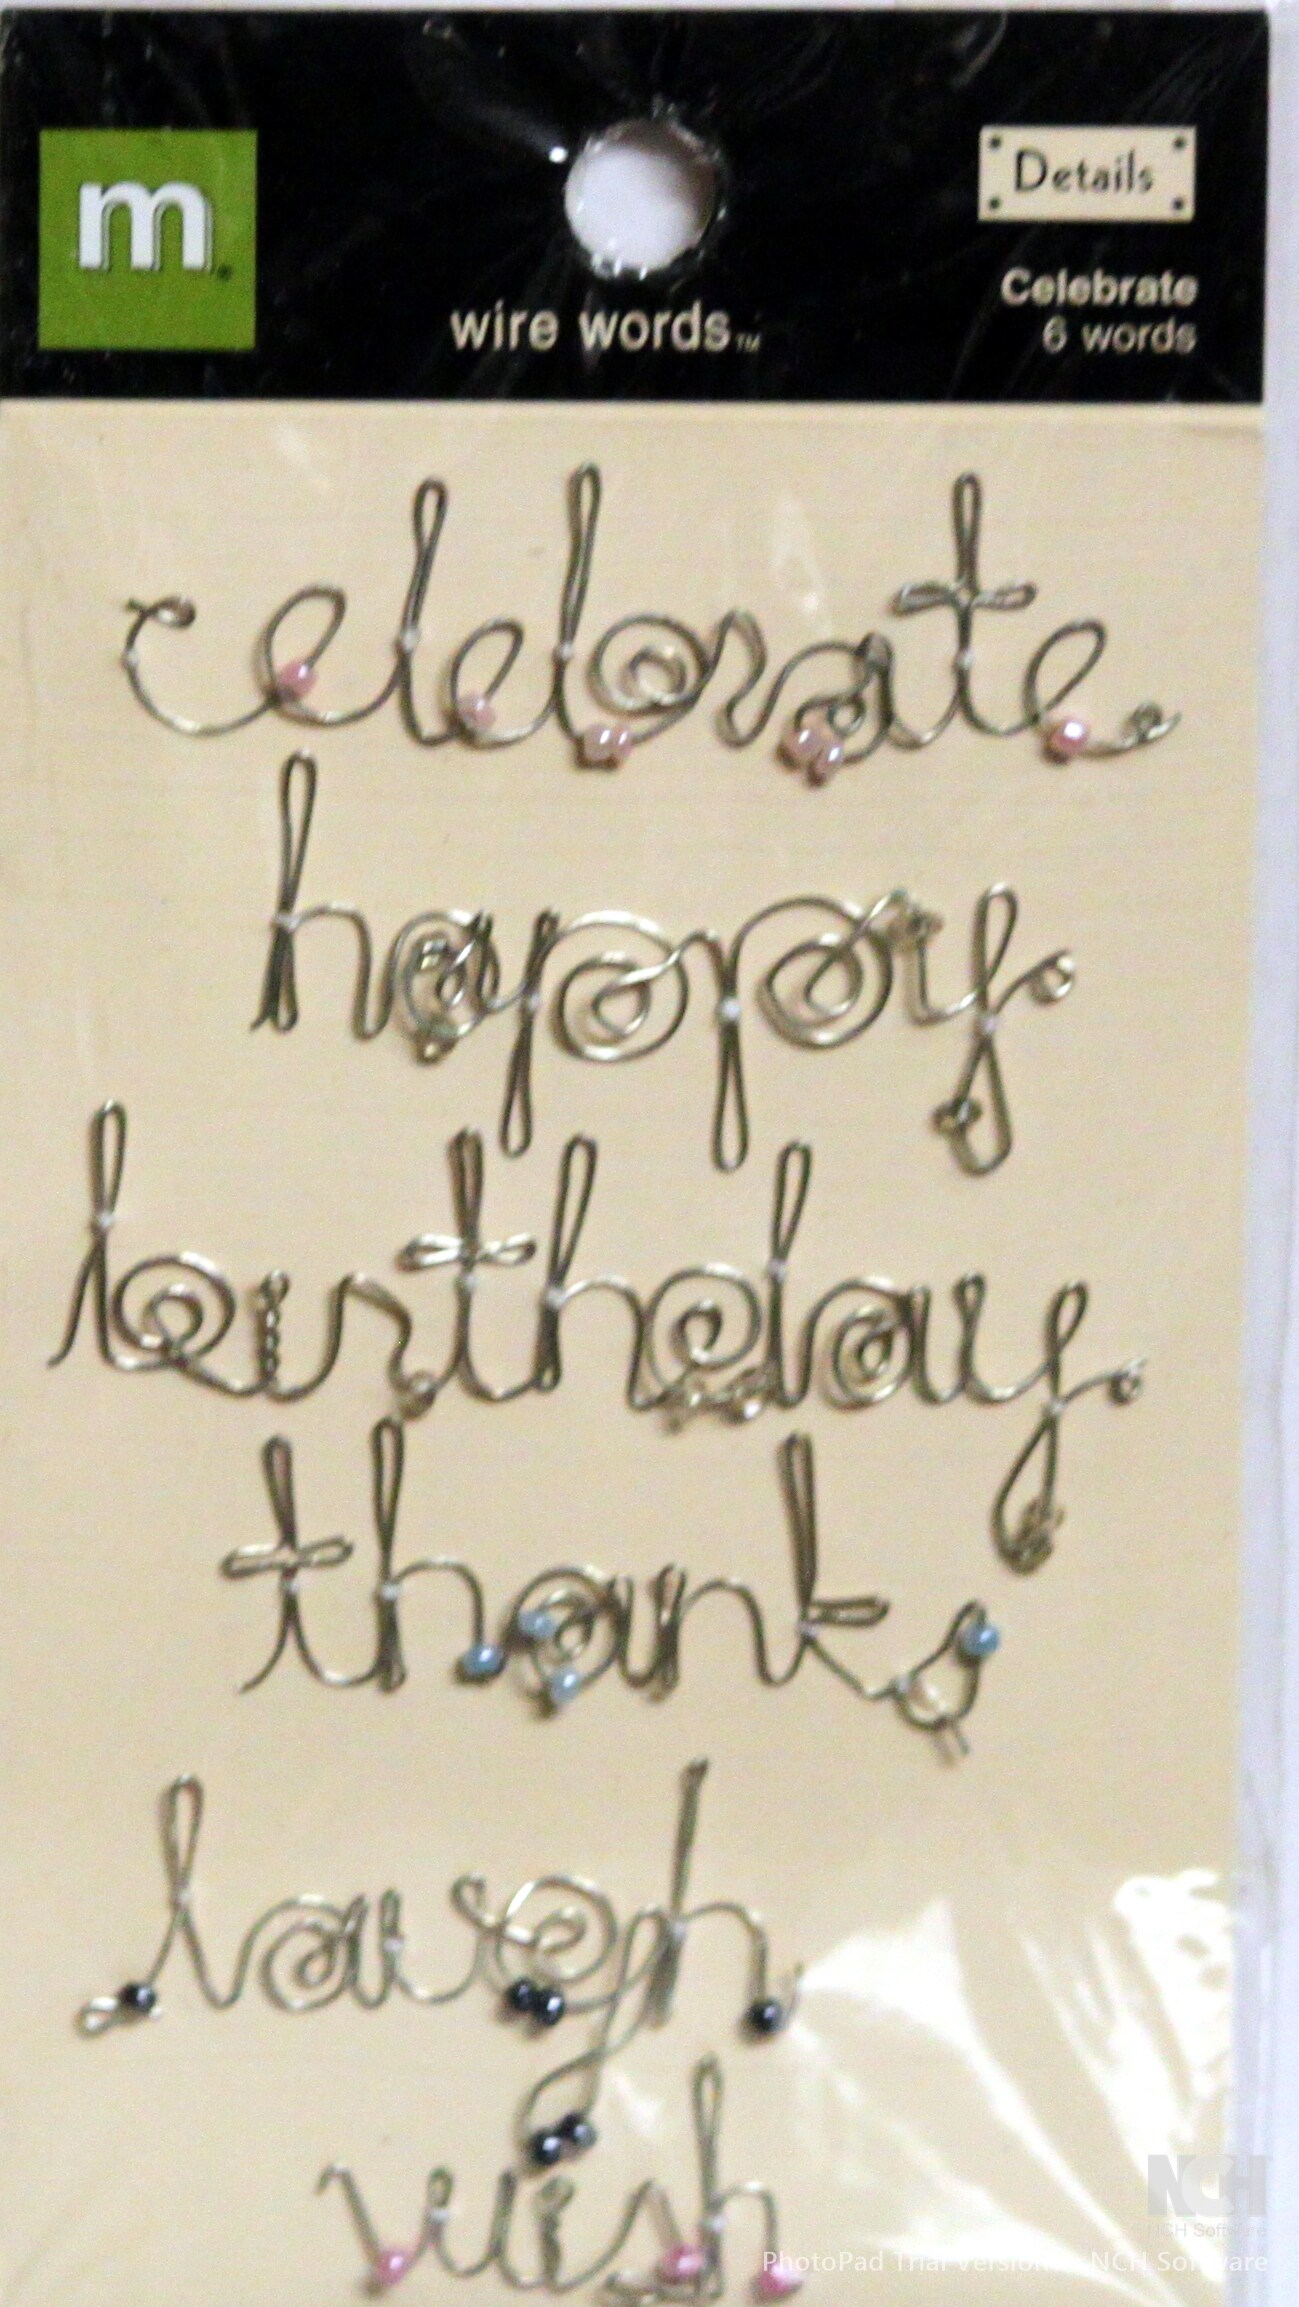 m
Details
Celebrate
6 words
wire words™
celebrate
happy
birthday
thanks
laugh
wish
NCH
NCH Software
PhotoPad Trial Version NCH Software